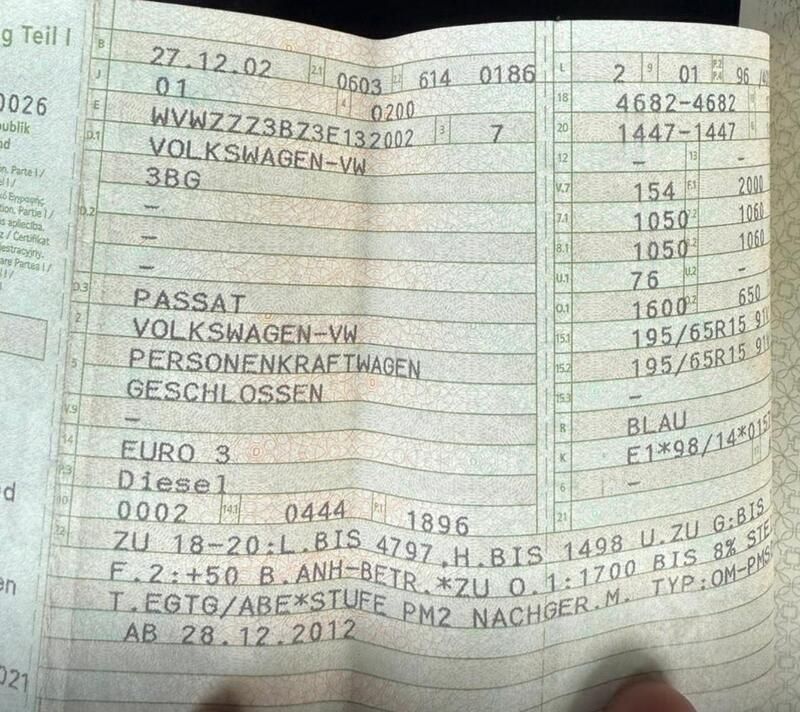 g Teil I
0026
publik
nd
on. Parte I /
el I /
ó Εγγραφής
tion, Partie I /
s aplieciba.
z / Certificat
estracyjny.
are Partea I /
I /
d
en
021
B 27.12.02 2.1 0603 2.2 614 0186
J 01 4 0200
E WVWZZZ3BZ3E132002 3 7
D.1 VOLKSWAGEN-VW
3BG
D.2 –
–
–
D.3 PASSAT
2 VOLKSWAGEN-VW
5 PERSONENKRAFTWAGEN
GESCHLOSSEN
V.9 –
14 EURO 3
P.3 Diesel
10 0002 14.1 0444 P.1 1896
L 2 9 01 P.2 P.4 96
18 4682-4682
20 1447-1447
12 – 13 –
V.7 154 F.1 2000
7.1 1050 1060
8.1 1050 1060
U.1 76 U.2 –
O.1 1600 O.2 650
15.1 195/65R15
15.2 195/65R15
15.3 –
R BLAU
K E1*98/14*0157
6 –
21
22 ZU 18-20:L.BIS 4797,H.BIS 1498 U.ZU G:BIS
F.2:+50 B.ANH-BETR.*ZU O.1:1700 BIS 8%
T.EGTG/ABE*STUFE PM2 NACHGER.M. TYP:OM-PMS
AB 28.12.2012